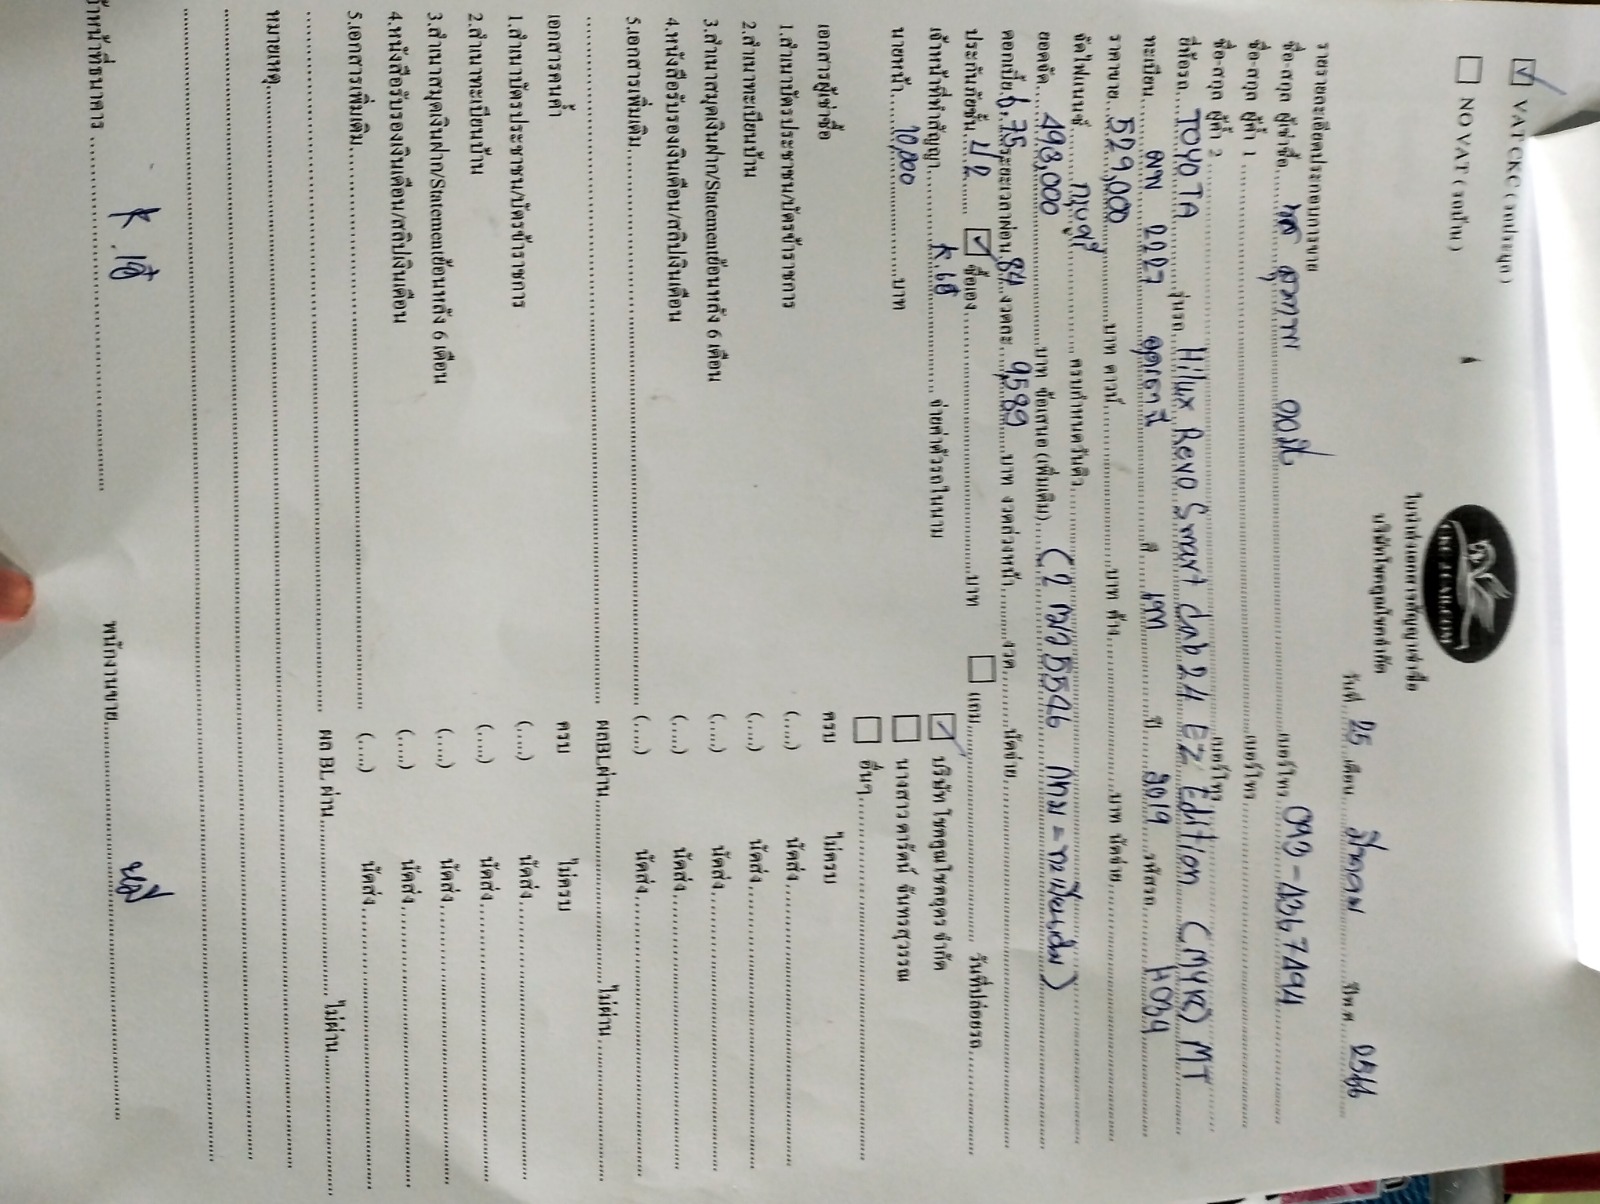 ☑ VAT CKC (รถประมูล)
☐ NO VAT (รถบ้าน)
ใบนำส่งเอกสารสัญญาเช่าซื้อ
บริษัทโชคคูณโชคจำกัด
วันที่ 25 เดือน มีนาคม ปีพ.ศ 2566
รายรายละเอียดประกอบการขาย
ชื่อ-สกุล ผู้เช่าซื้อ เบอร์โทร
ชื่อ-สกุล ผู้ค้ำ 1 เบอร์โทร
ชื่อ-สกุล ผู้ค้ำ 2 เบอร์โทร
ยี่ห้อรถ TOYOTA รุ่นรถ Hilux Revo Smart Cab 2.4 EZ Edition (MY18) MT
ทะเบียน ผพ 2227 อุดรธานี สี เทา ปี 2019 รหัสรถ H034
ราคาขาย 529,000 บาท ดาวน์ บาท ค้าง บาท นัดจ่าย
จัดไฟแนนซ์ กรุงศรี ครบกำหนดวันตัว
ยอดจัด 498,000 บาท ข้อเสนอ (เพิ่มเติม) (2 ฒข 5546 กทม = ทะเบียนเดิม)
ดอกเบี้ย 6.75 ระยะเวลาผ่อน 84 งวดละ 9,589 บาท งวดล่วงหน้า งวด นัดจ่าย
ประกันภัยชั้น ป2 ☑ ซื้อเอง บาท ☐ แถม วันที่ปล่อยรถ
เจ้าหน้าที่ทำสัญญา จ่ายค่าตัวรถในนาม ☑ บริษัท โชคคูณโชคอุดร จำกัด
นายหน้า 10,000 บาท ☐ นางสาว ดารัตน์ จันทรสุวรรณ
☐ อื่นๆ
เอกสารผู้เช่าซื้อ ครบ ไม่ครบ
1.สำเนาบัตรประชาชน/บัตรข้าราชการ (.....) นัดส่ง
2.สำเนาทะเบียนบ้าน (.....) นัดส่ง
3.สำเนาสมุดเงินฝาก/Statementย้อนหลัง 6 เดือน (.....) นัดส่ง
4.หนังสือรับรองเงินเดือน/สลิปเงินเดือน (.....) นัดส่ง
5.เอกสารเพิ่มเติม (.....) นัดส่ง
ผลBLผ่าน ไม่ผ่าน
เอกสารคนค้ำ ครบ ไม่ครบ
1.สำเนาบัตรประชาชน/บัตรข้าราชการ (.....) นัดส่ง
2.สำนาทะเบียนบ้าน (.....) นัดส่ง
3.สำเนาสมุดเงินฝาก/Statementย้อนหลัง 6 เดือน (.....) นัดส่ง
4.หนังสือรับรองเงินเดือน/สลิปเงินเดือน (.....) นัดส่ง
5.เอกสารเพิ่มเติม (.....) นัดส่ง
ผล BL ผ่าน ไม่ผ่าน
หมายเหตุ
จ้าหน้าที่ธนาคาร พนักงานขาย